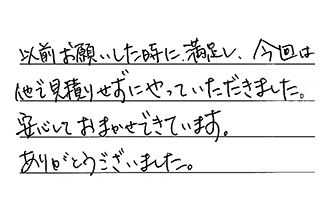 以前お願いした時に、満足し、今回は
他で見積りせずにやっていただきました。
安心しておまかせできています。
ありがとうございました。